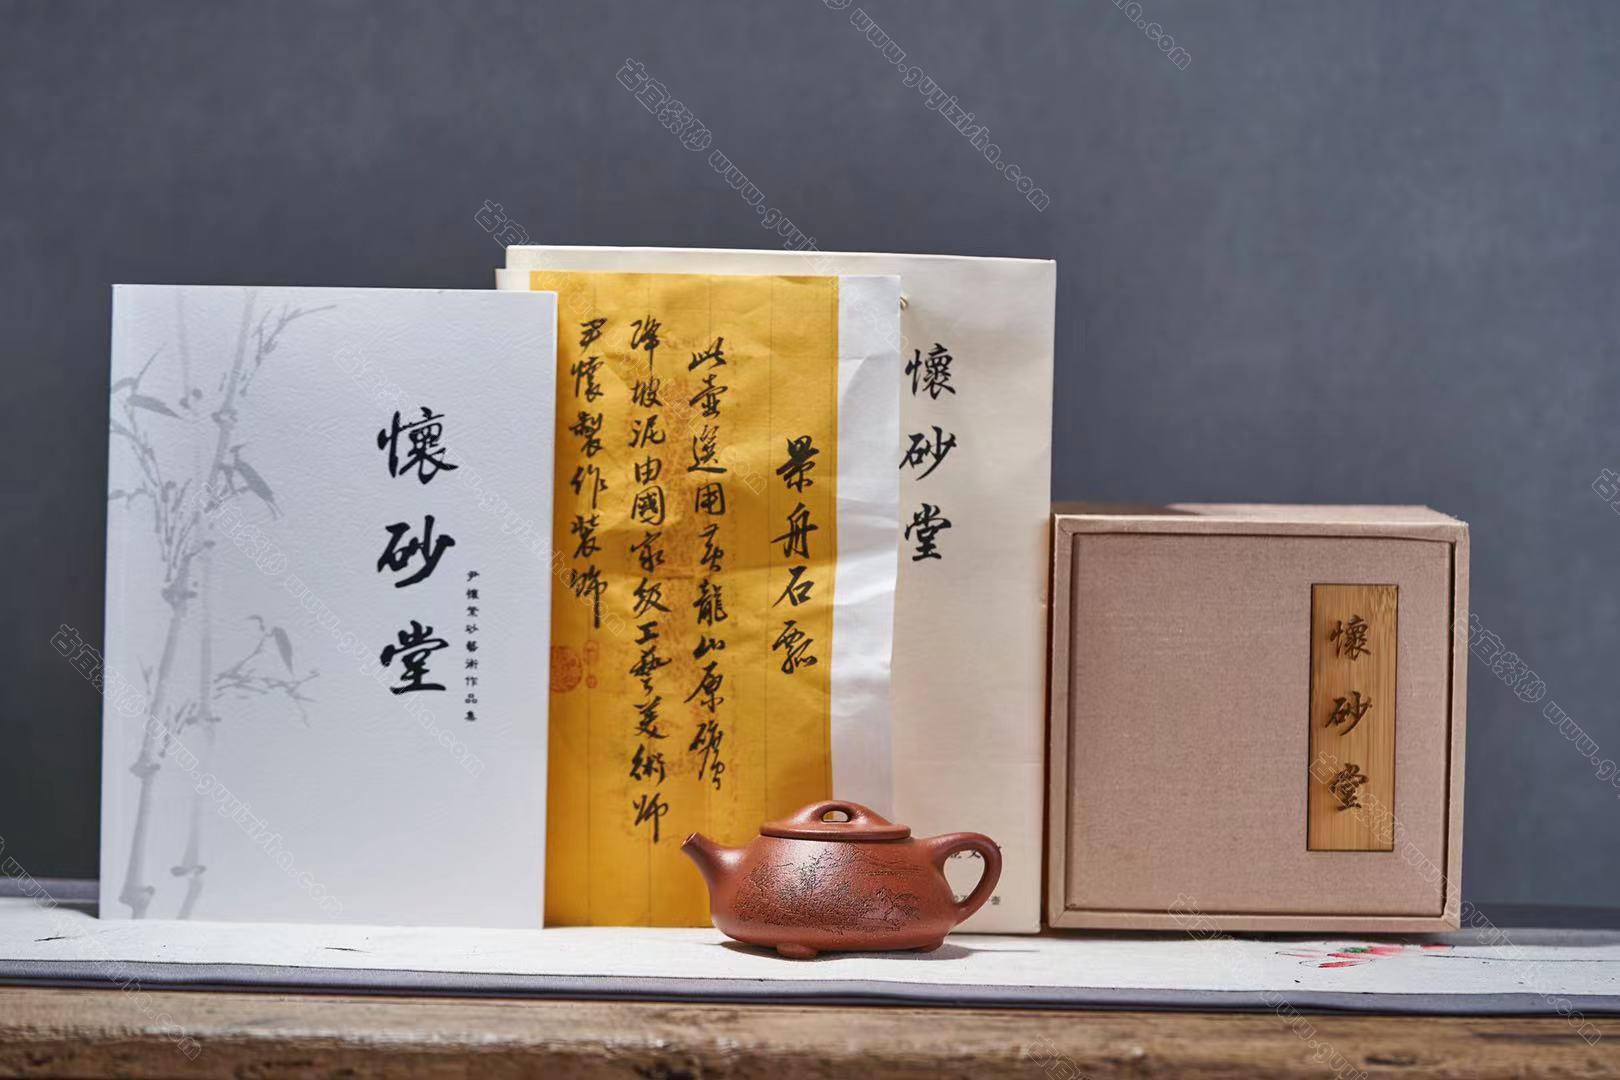 懷砂堂
尹懷紫砂藝術作品集
景舟石瓢
此壺選用黃龍山原礦
降坡泥由國家級工藝美術師
尹懷製作裝飾
懷砂堂
懷砂堂
古宜紫砂 www.guyizisha.com